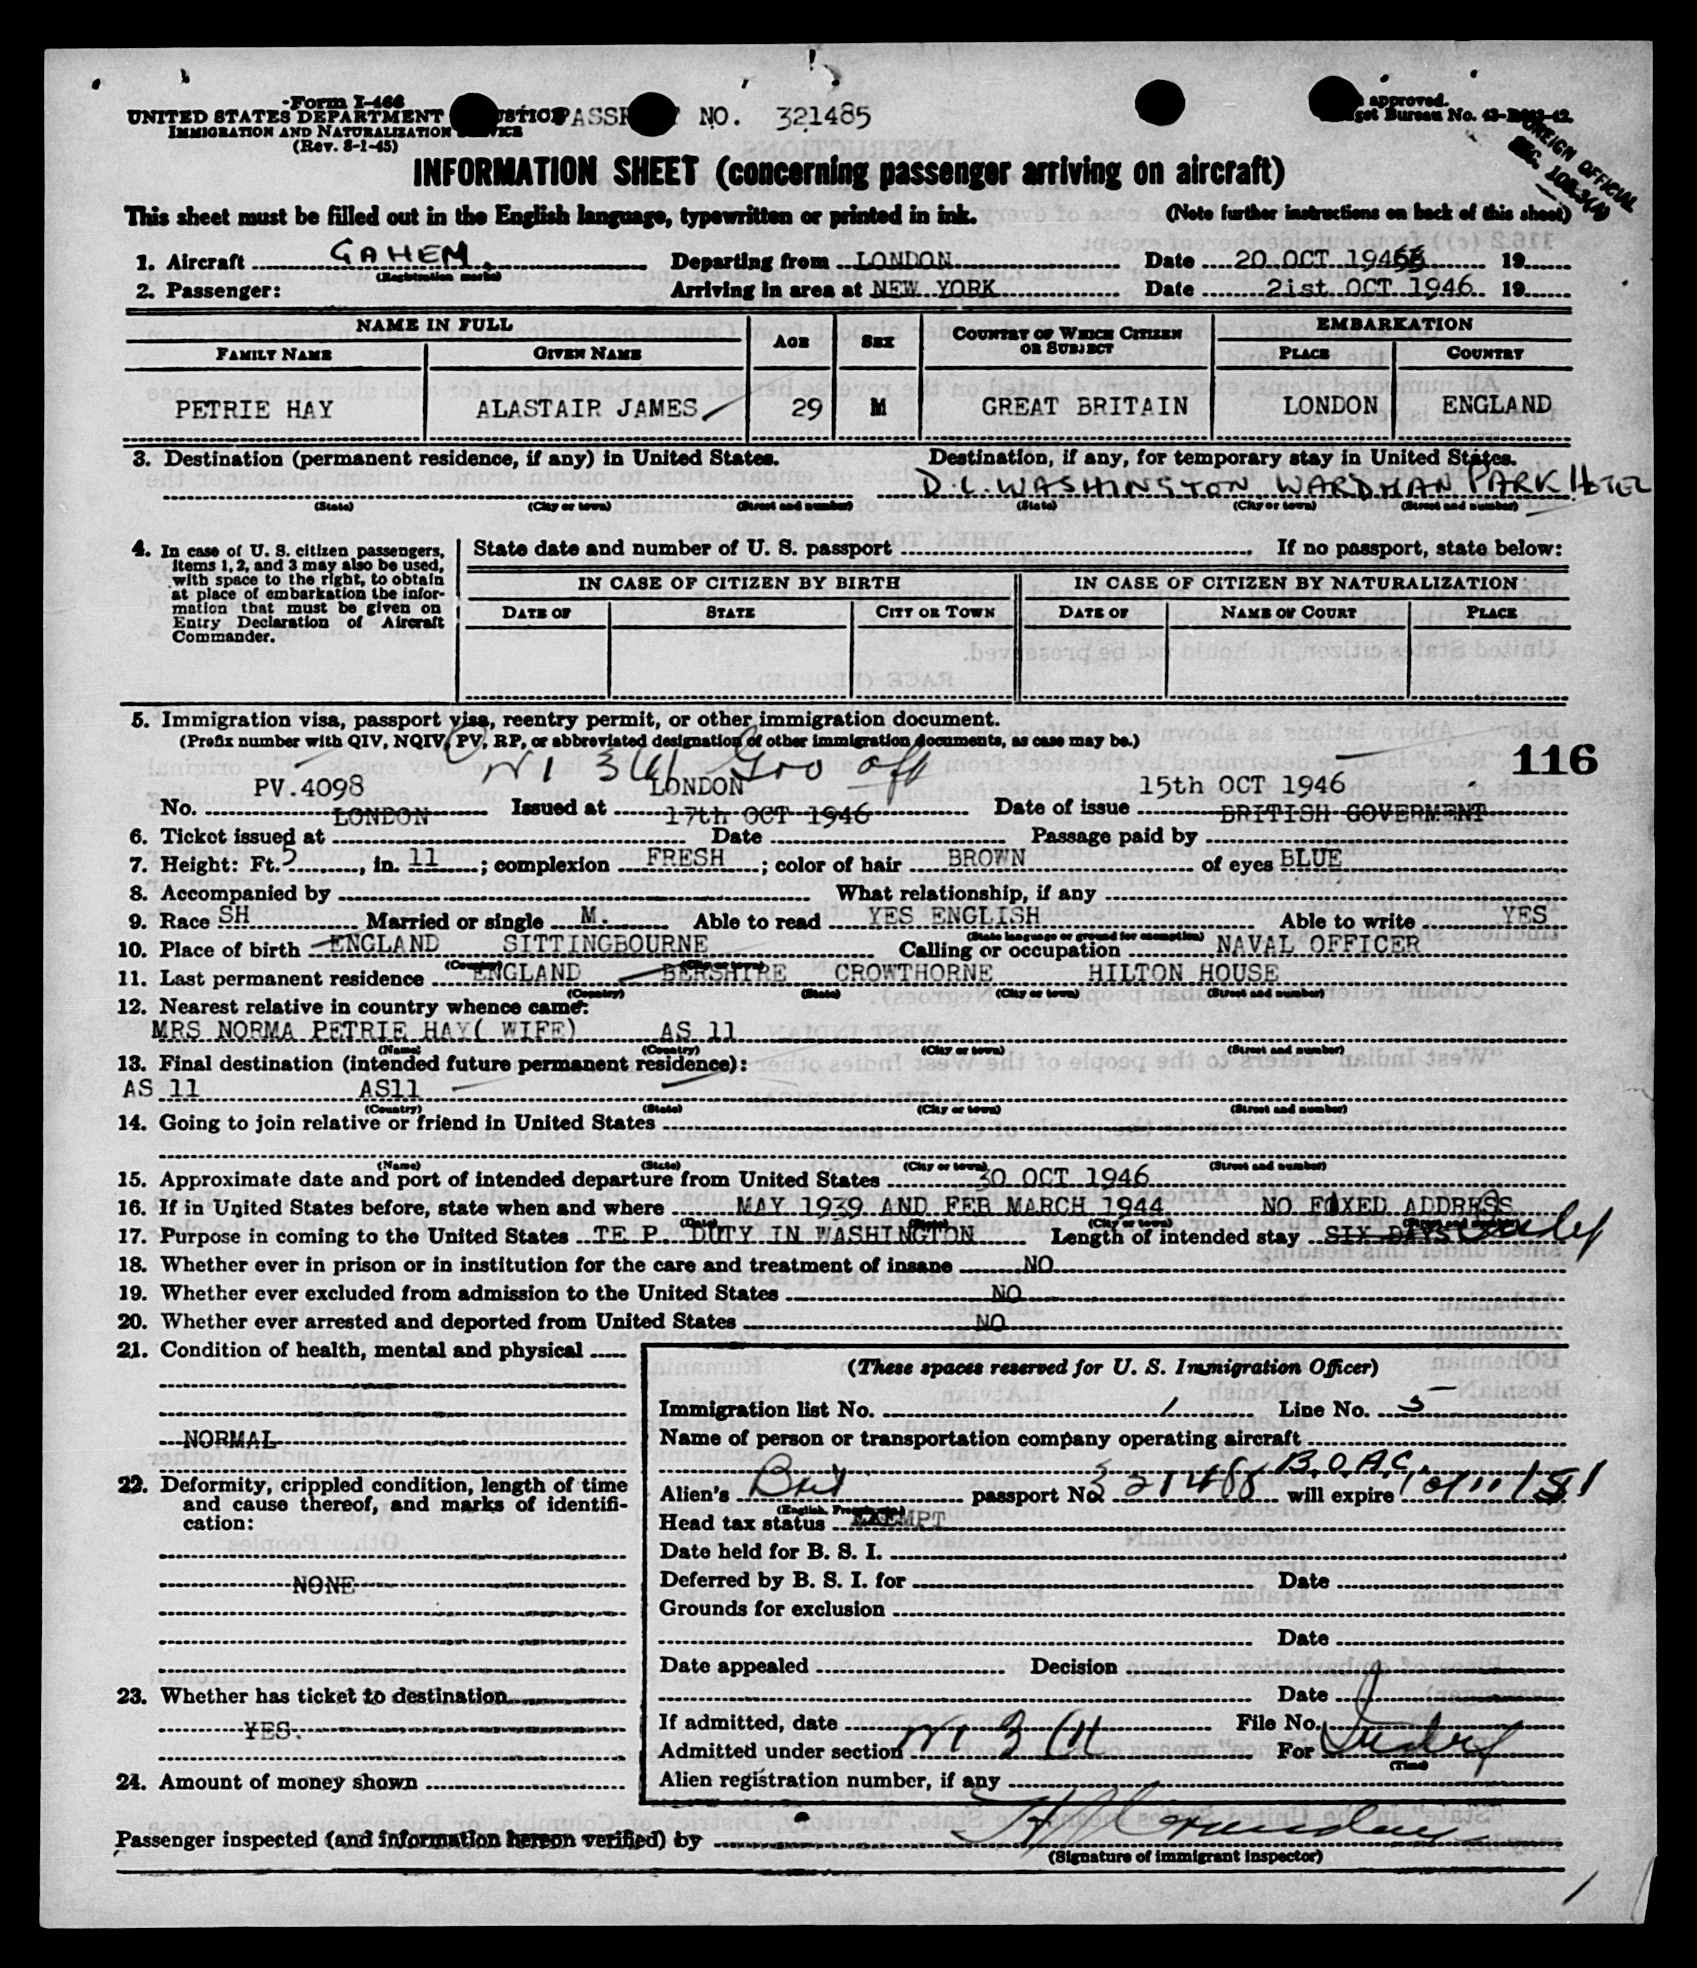 Form I-466
UNITED STATES DEPARTMENT PASSP NO. 321485
IMMIGRATION AND NATURALIZATION SERVICE
(Rev. 8-1-45)
approved.
Bureau No. 43-
FOREIGN OFFICIAL
INFORMATION SHEET (concerning passenger arriving on aircraft)
This sheet must be filled out in the English language, typewritten or printed in ink. (Note further instructions on back of this sheet)
1. Aircraft GAHEM Departing from LONDON Date 20 OCT 19 19
(Registration marks)
2. Passenger: Arriving in area at NEW YORK Date 21st OCT 1946 19
NAME IN FULL AGE SEX COUNTRY OF WHICH CITIZEN OR SUBJECT EMBARKATION
FAMILY NAME GIVEN NAME PLACE COUNTRY
PETRIE HAY ALASTAIR JAMES 29 M GREAT BRITAIN LONDON ENGLAND
3. Destination (permanent residence, if any) in United States. Destination, if any, for temporary stay in United States.
D.C. WASHINGTON WARDMAN PARK HOTEL
(State) (City or town) (Street and number) (State) (City or town) (Street and number)
4. In case of U. S. citizen passengers, items 1, 2, and 3 may also be used, with space to the right, to obtain at place of embarkation the information that must be given on Entry Declaration of Aircraft Commander.
State date and number of U. S. passport If no passport, state below:
IN CASE OF CITIZEN BY BIRTH IN CASE OF CITIZEN BY NATURALIZATION
DATE OF STATE CITY OR TOWN DATE OF NAME OF COURT PLACE
5. Immigration visa, passport visa, reentry permit, or other immigration document.
(Prefix number with QIV, NQIV, PV, RP, or abbreviated designation of other immigration documents, as case may be.)
116
3(1) Gov off
PV.4098 LONDON 15th OCT 1946
No. Issued at Date of issue
LONDON 17th OCT 1946 BRITISH GOVERMENT
6. Ticket issued at Date Passage paid by
7. Height: Ft. 5, in. 11; complexion FRESH; color of hair BROWN of eyes BLUE
8. Accompanied by What relationship, if any
9. Race SH Married or single M. Able to read YES ENGLISH Able to write YES
(State language or ground for exemption)
10. Place of birth ENGLAND SITTINGBOURNE Calling or occupation NAVAL OFFICER
(Country) (City or town)
11. Last permanent residence ENGLAND BERSHIRE CROWTHORNE HILTON HOUSE
(Country) (State) (City or town) (Street and number)
12. Nearest relative in country whence came:
MRS NORMA PETRIE HAY( WIFE) AS 11
(Name) (Country) (City or town) (Street and number)
13. Final destination (intended future permanent residence):
AS 11 AS11
(Country) (State) (City or town) (Street and number)
14. Going to join relative or friend in United States
(Name) (State) (City or town) (Street and number)
15. Approximate date and port of intended departure from United States 30 OCT 1946
16. If in United States before, state when and where MAY 1939 AND FEB MARCH 1944 NO FIXED ADDRESS
(Date) (State) (City or town) (Street and number)
17. Purpose in coming to the United States TE P. DUTY IN WASHINGTON Length of intended stay SIX DAYS
18. Whether ever in prison or in institution for the care and treatment of insane NO
19. Whether ever excluded from admission to the United States NO
20. Whether ever arrested and deported from United States NO
21. Condition of health, mental and physical
NORMAL
22. Deformity, crippled condition, length of time and cause thereof, and marks of identification:
NONE
23. Whether has ticket to destination
YES.
24. Amount of money shown
(These spaces reserved for U. S. Immigration Officer)
Immigration list No. 1 Line No. 5
Name of person or transportation company operating aircraft
B.O.A.C.
Alien's Brit passport No. 321485 will expire
Head tax status EXEMPT
Date held for B. S. I.
Deferred by B. S. I. for Date
Grounds for exclusion
Date
Date appealed Decision
Date
If admitted, date File No.
Admitted under section 3(1) For
(Time)
Alien registration number, if any
Passenger inspected (and information hereon verified) by
(Signature of immigrant inspector)